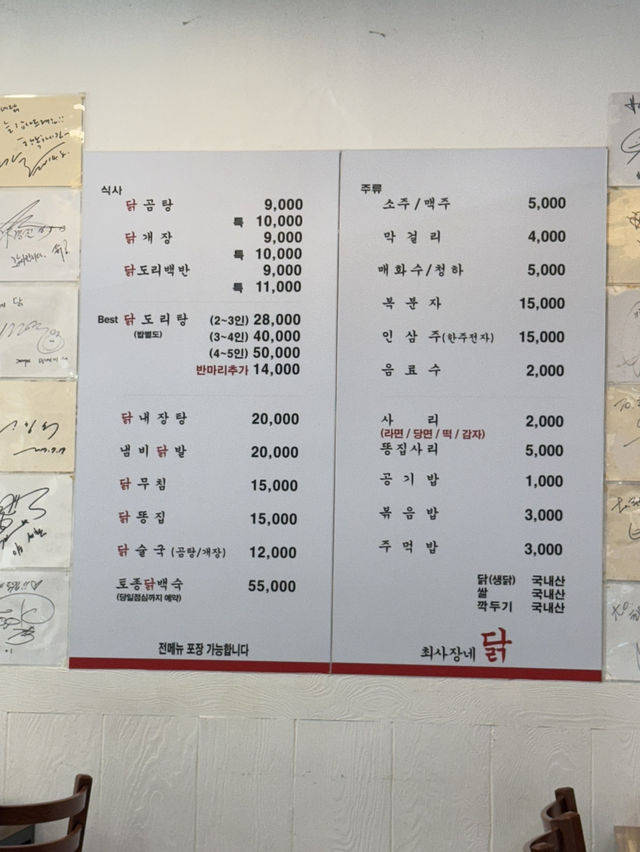 식사
닭 곰탕 9,000
특 10,000
닭 개장 9,000
특 10,000
닭도리백반 9,000
특 11,000
Best 닭 도리탕 (2~3인) 28,000
(밥별도) (3~4인) 40,000
(4~5인) 50,000
반마리추가 14,000
닭 내장탕 20,000
냄비 닭발 20,000
닭 무침 15,000
닭 똥집 15,000
닭 술국 (곰탕/개장) 12,000
토종닭백숙 55,000
(당일점심까지 예약)
전메뉴 포장 가능합니다
주류
소주/맥주 5,000
막걸리 4,000
매화수/청하 5,000
복분자 15,000
인삼주(한주전자) 15,000
음료수 2,000
사리 2,000
(라면 / 당면 / 떡 / 감자)
똥집사리 5,000
공기밥 1,000
볶음밥 3,000
주먹밥 3,000
닭(생닭) 국내산
쌀 국내산
깍두기 국내산
최사장네 닭